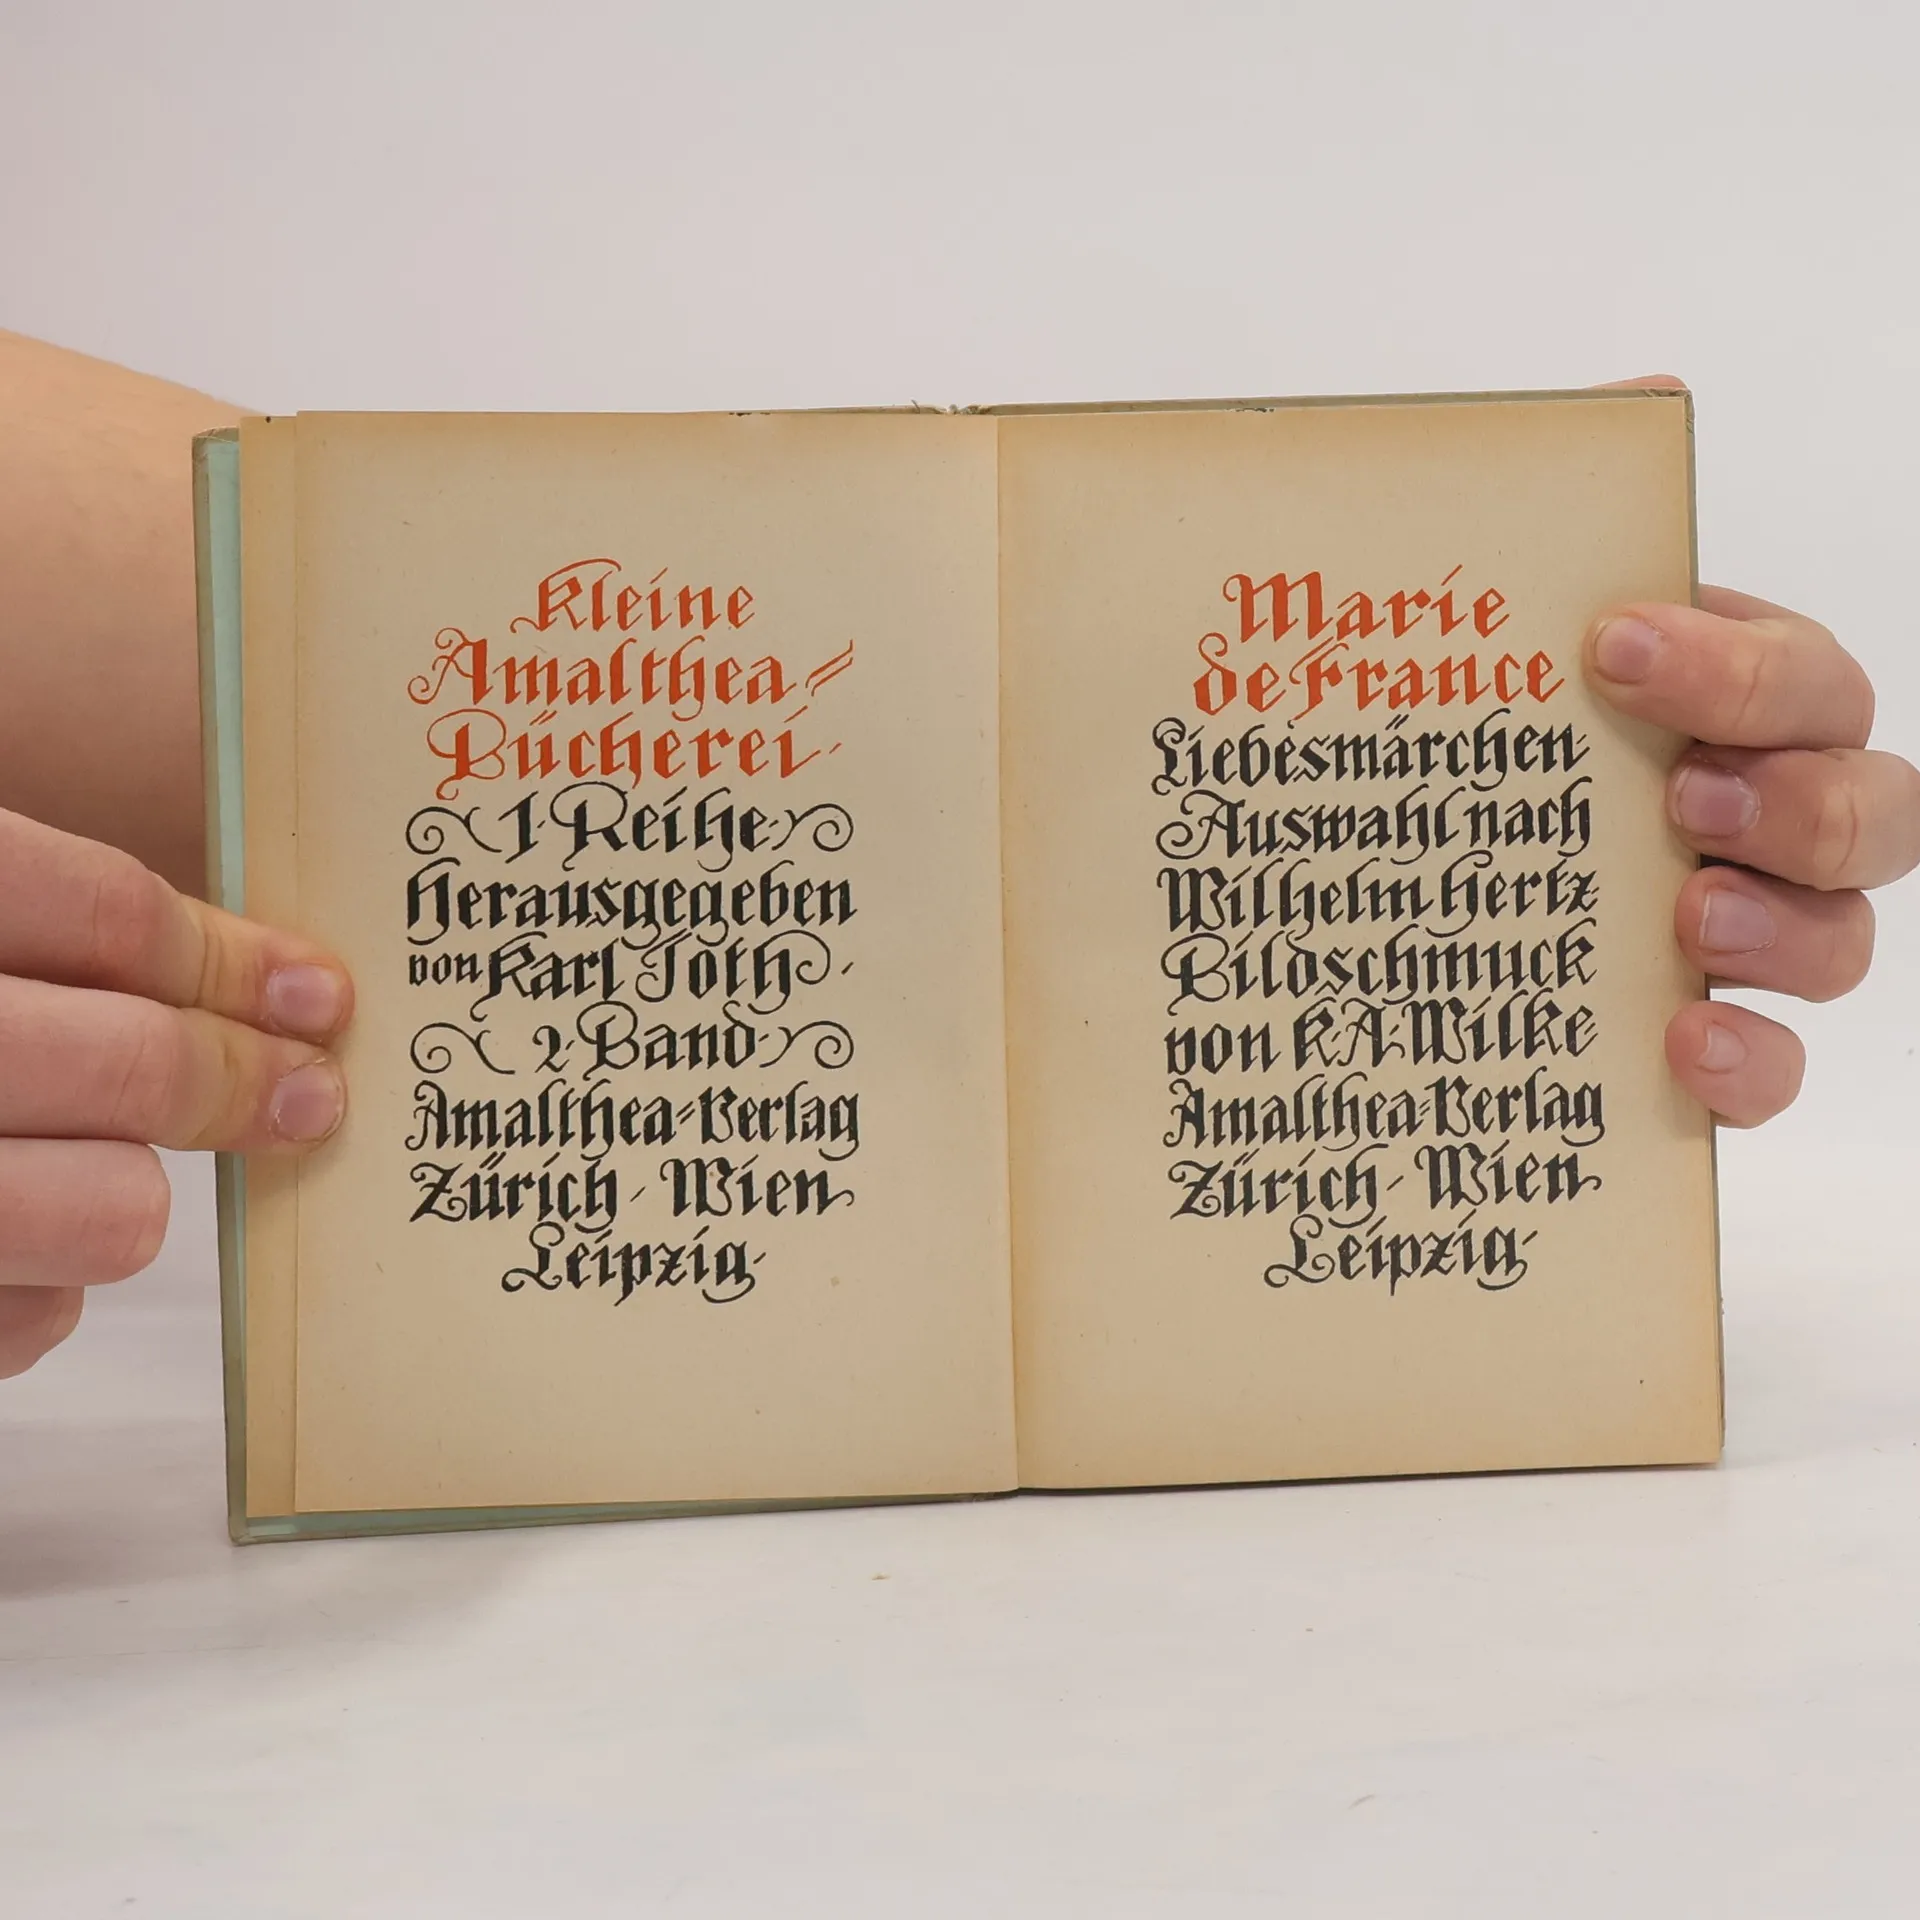 Kleine
Amalthea=
Bücherei.
1. Reihe.
Herausgegeben
von Karl Toth.
2. Band.
Amalthea=Verlag
Zürich - Wien
Leipzig.
Marie
de France
Liebesmärchen.
Auswahl nach
Wilhelm Hertz.
Bildschmuck
von K.A. Wilke.
Amalthea=Verlag
Zürich - Wien
Leipzig.